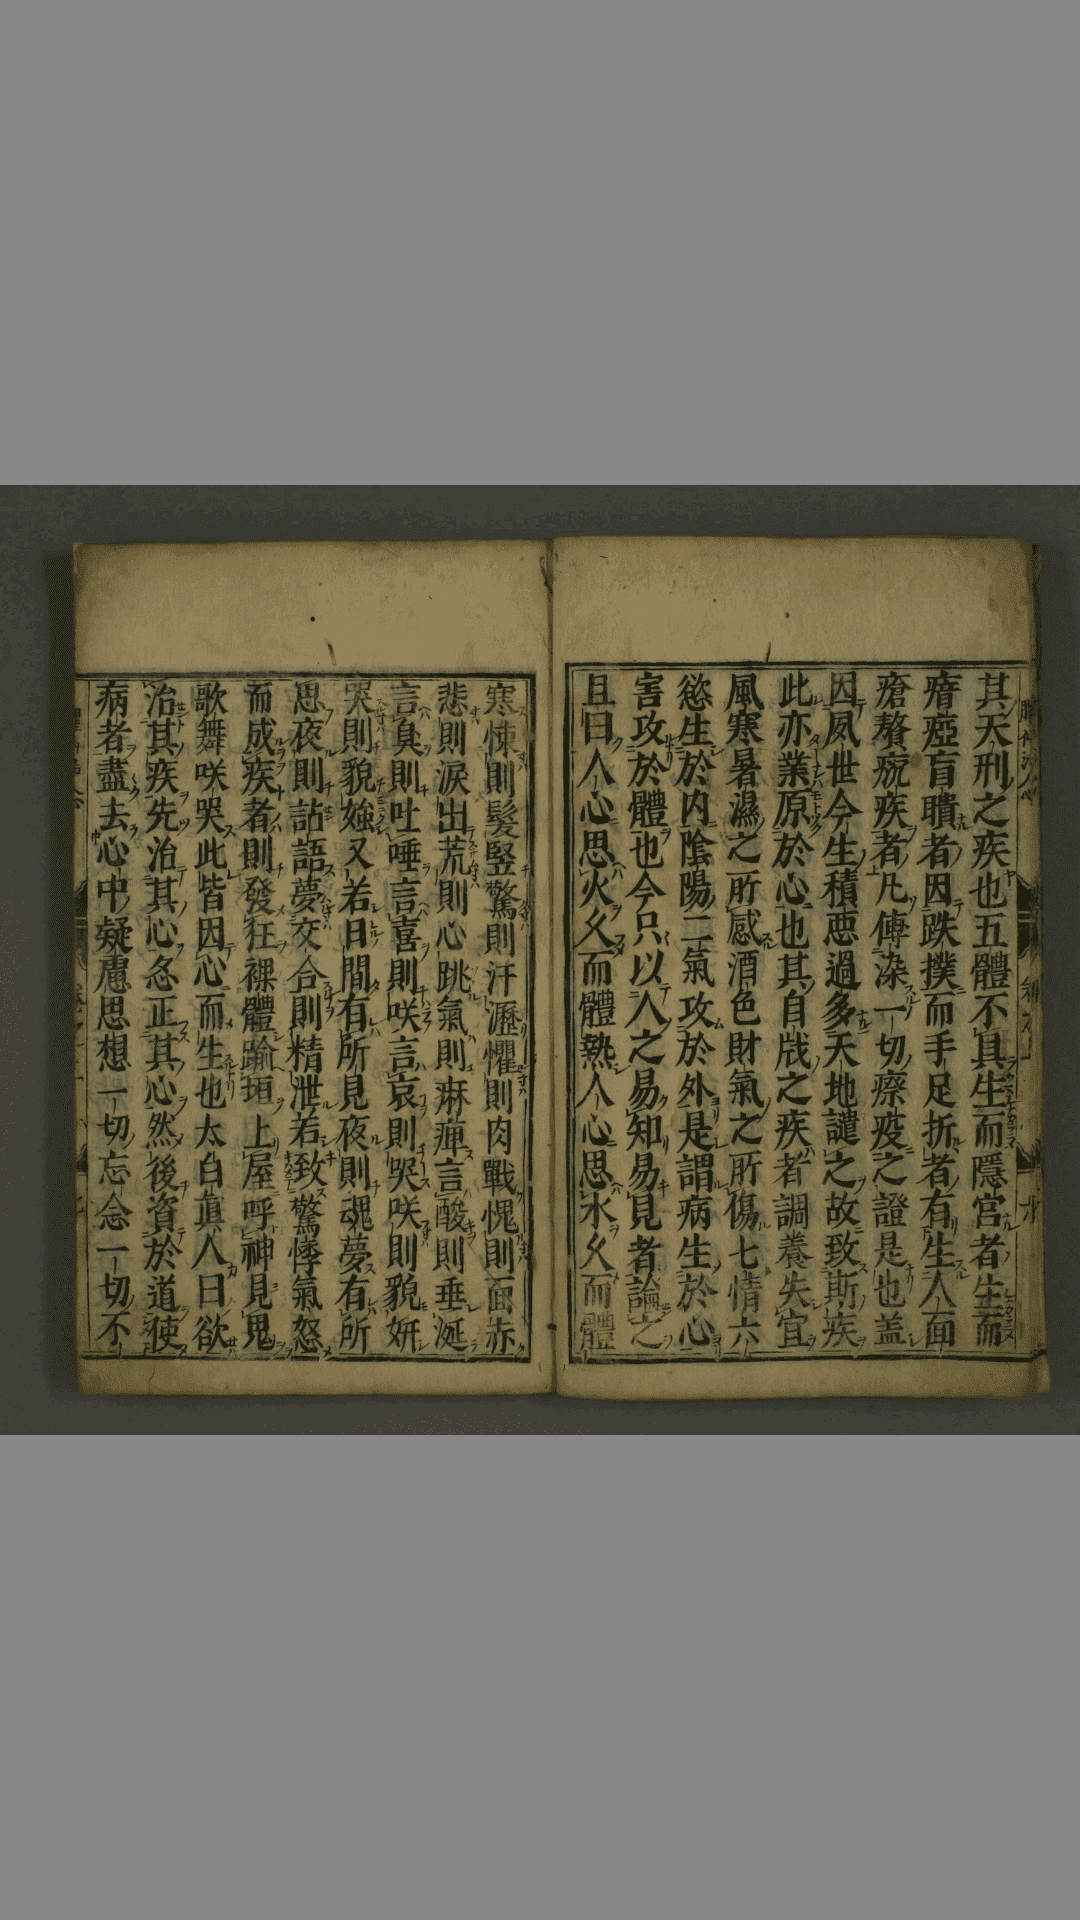 其天刑之疾也五體不具生而隱宮者生而
瘖瘂盲聵者因跌撲而手足折者有生人面
瘡贅疣疾者凡傳染一切瘵疫之證是也盖
因夙世今生積惡過多天地譴之故致斯疾
此亦業原於心也其自戕之疾者調養失宜
風寒暑濕之所感酒色財氣之所傷七情六
慾生於内陰陽二氣攻於外是謂病生於心
害攻於體也今只以人之易知易見者論之
且曰人心思火久而體熱人心思氷久而體
寒悚則髮竪驚則汗瀝懼則肉戰愧則面赤
悲則淚出荒則心跳氣則痳痺言酸則垂涎
言臭則吐唾言喜則咲言哀則哭咲則貌妍
哭則貌媸又若日間有所見夜則魂夢有所
思夜則詀語夢交合則精泄若致驚悸氣怒
而成疾者則發狂裸體踰垣上屋呼神見鬼
歌舞咲哭此皆因心而生也太白真人曰欲
治其疾先治其心必正其心然後資於道使
病者盡去心中疑慮思想一切忘念一切不